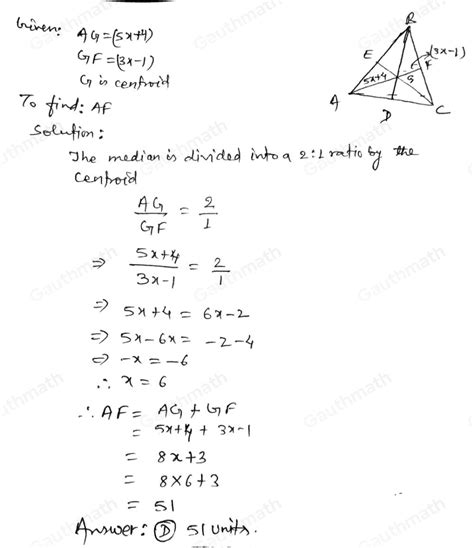 Given: AG=(5x+4)
GF=(3x-1)
G is centroid
To find: AF
Solution:
The median is divided into a 2:1 ratio by the
centroid
AG/GF = 2/1
⇒ 5x+4/3x-1 = 2/1
⇒ 5x+4 = 6x-2
⇒ 5x-6x = -2-4
⇒ -x = -6
∴ x = 6
∴ AF = AG + GF
= 5x+4 + 3x-1
= 8x+3
= 8×6+3
= 51
Answer: D 51 units.
B
E
(3x-1)
F
5x+4
G
A
D
C
Gauthmath